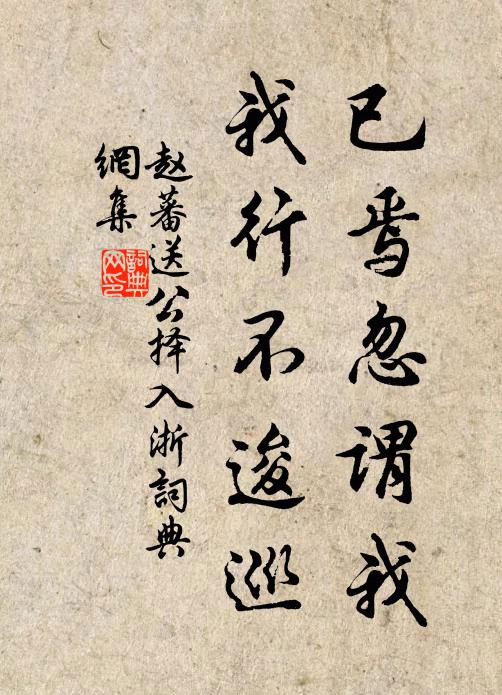 已焉忽谓我
我行不逡巡
赵蕃送公择入浙词典
網集
詞典
网印